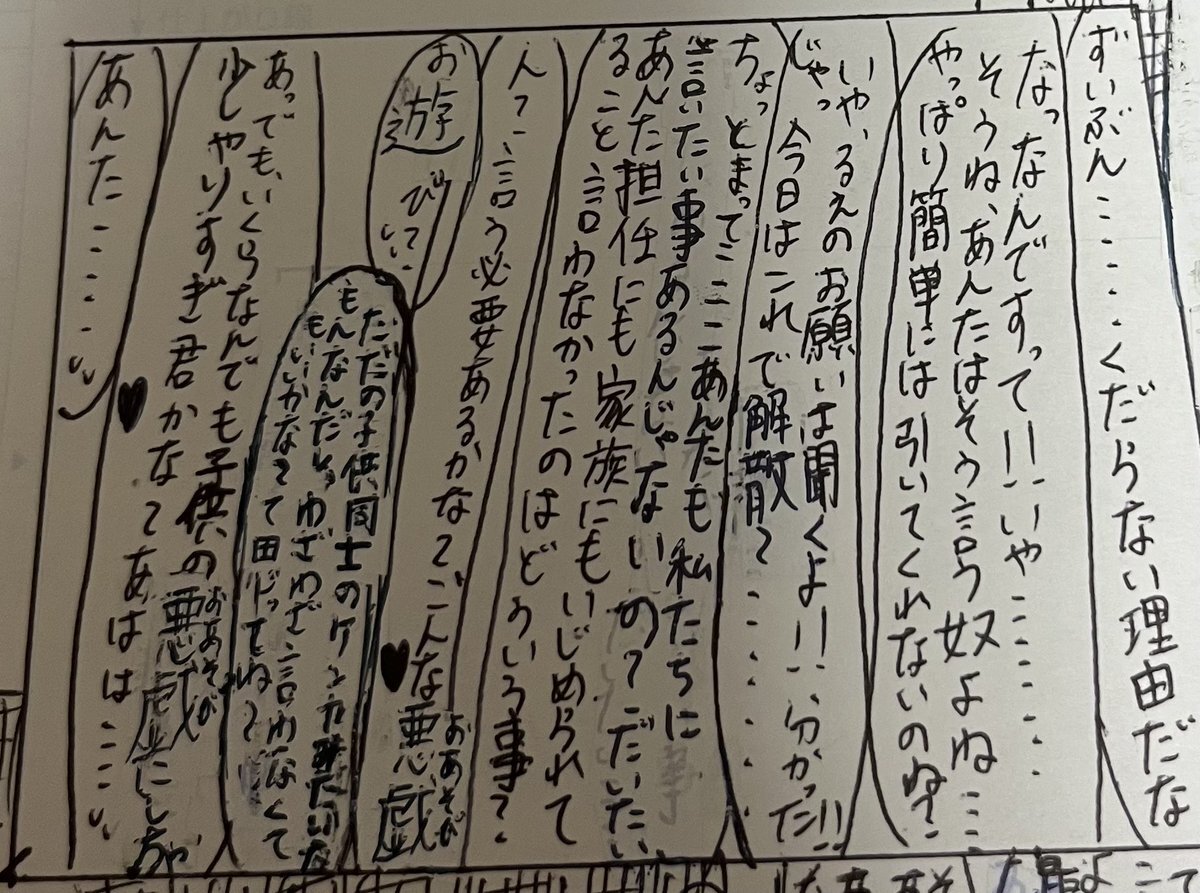 ずいぶん…………くだらない理由だな
なっなんですって!!いや…………
そうね、あんたはそう言う奴よね……
やっぱり簡単には引いてくれないのね?
いや、るえのお願いは聞くよ!!分かった!!
じゃっ今日はこれで解散?…………
ちょっとまって……あんたも私たちに
言いたい事あるんじゃないの?だいたい
あんた担任にも家族にもいじめられて
ること言わなかったのはどういう事?
ん?言う必要あるかな?こんな悪戯
おあそび
お遊びてい
ただの子供同士のケンカみたいな
もんなんだしっわざわざ言わなくて
もいいかなって思ってね?
あっでも、いくらなんでも子供の悪戯
おあそび
少しやりすぎ君かな?あはは……
にしちゃ
あんた…………